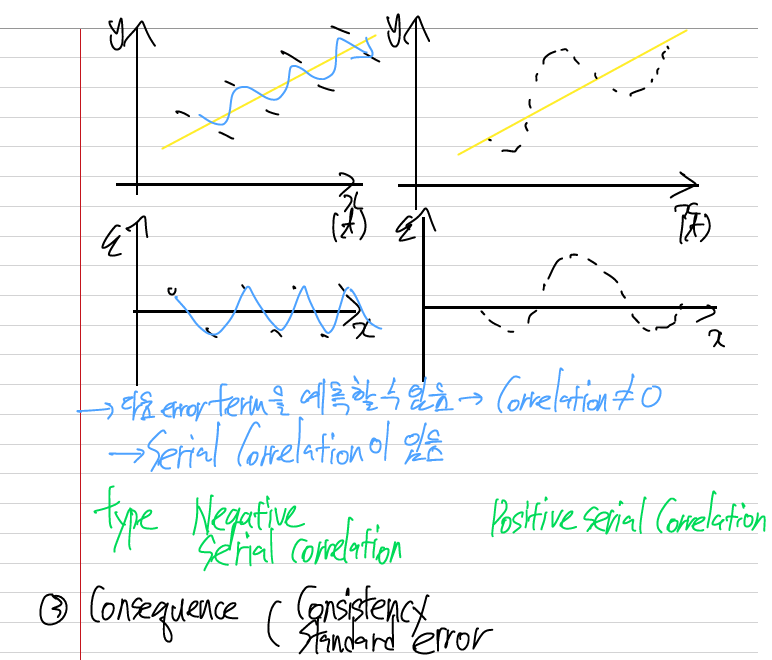 y
y
x
(t)
x
(t)
ε
ε
x
x
→ 다음 error term을 예측할 수 있음 → Correlation ≠ 0
→ Serial Correlation이 있음
type Negative serial correlation
Positive serial Correlation
③ Consequence ( Consistency
Standard error